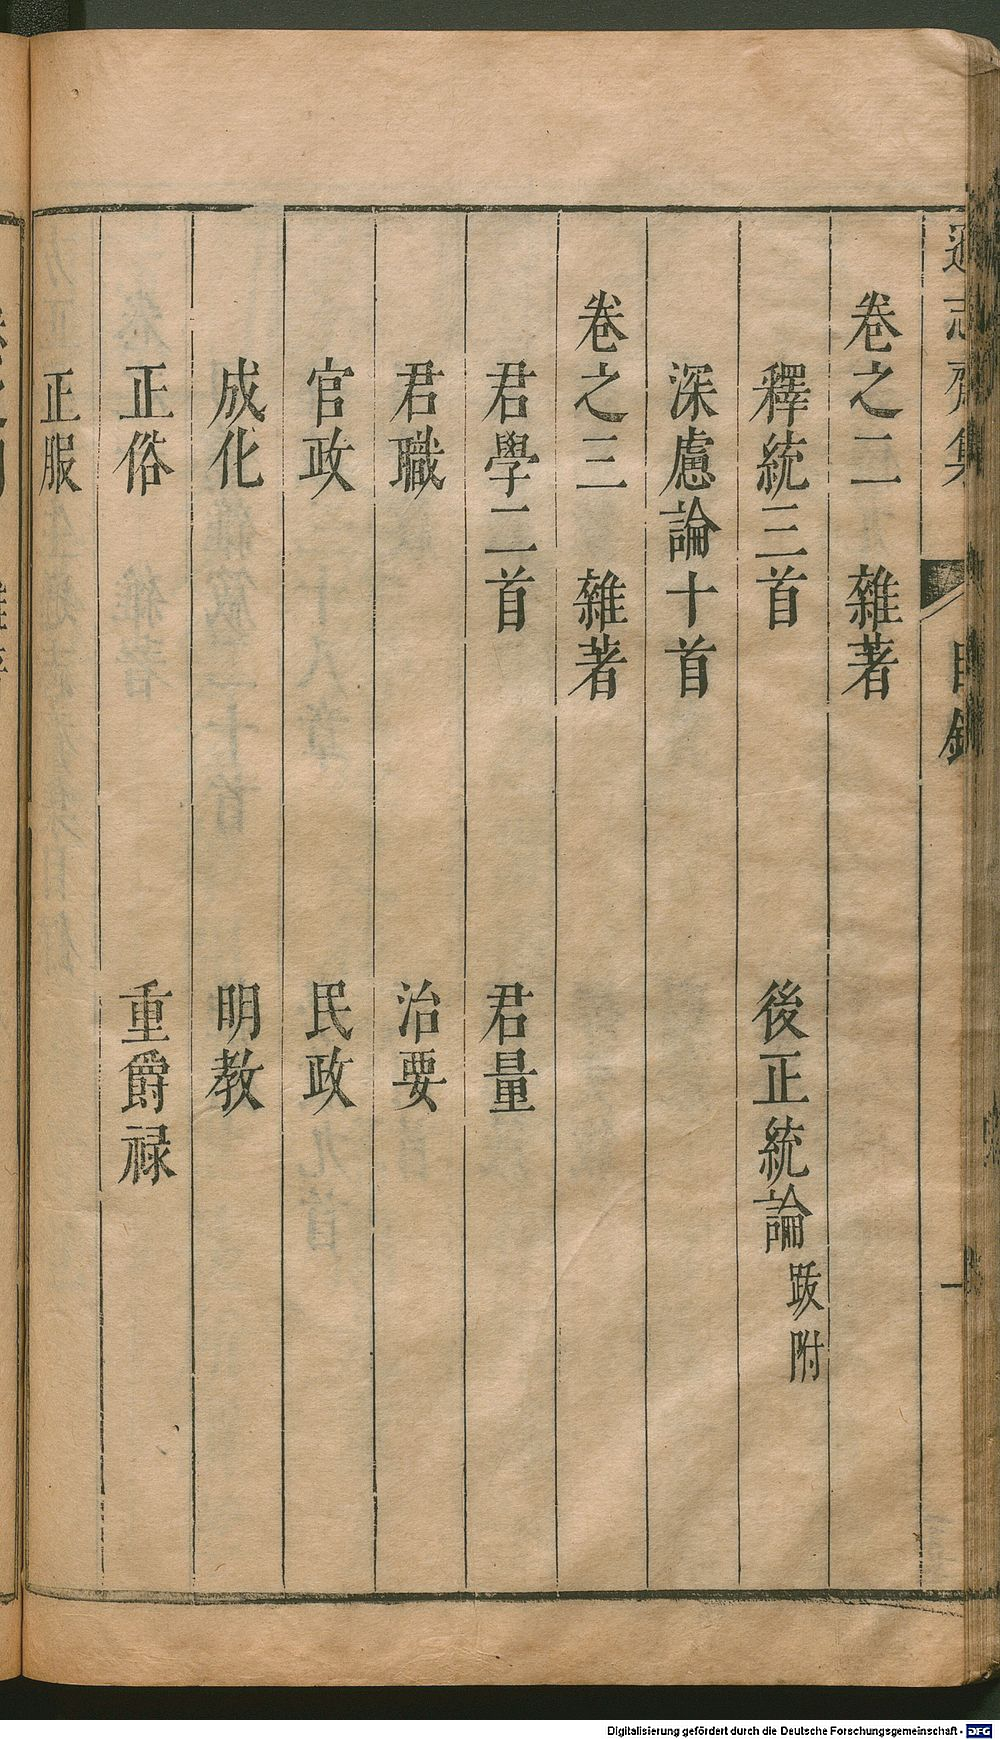 遜志齋集 目録 一
卷之二 雜著
釋統三首 後正統論 跋附
深慮論十首
卷之三 雜著
君學二首 君量
君職 治要
官政 民政
成化 明教
正俗 重爵禄
正服
Digitalisierung gefördert durch die Deutsche Forschungsgemeinschaft - DFG